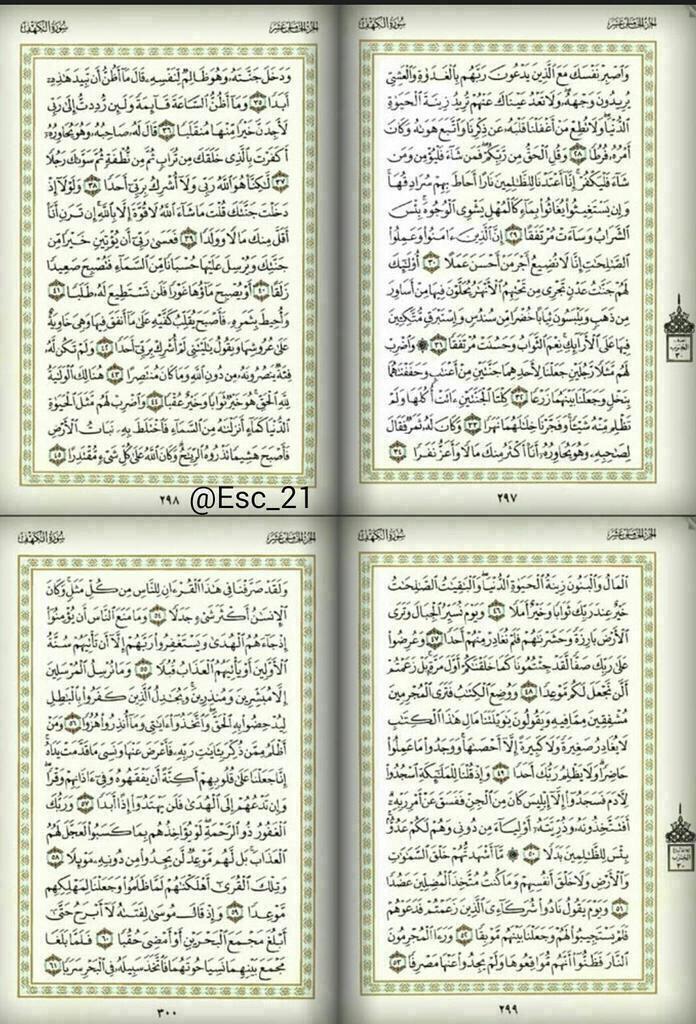 سورة الكهف
الجزء الخامس عشر
واصبر نفسك مع الذين يدعون ربهم بالغدوة والعشي
يريدون وجهه ولا تعد عيناك عنهم تريد زينة الحيوة
الدنيا ولا تطع من أغفلنا قلبه عن ذكرنا واتبع هوىه وكان
أمره فرطا ٢٨ وقل الحق من ربكم فمن شاء فليؤمن ومن
شاء فليكفر إنا أعتدنا للظلمين نارا أحاط بهم سرادقها
وإن يستغيثوا يغاثوا بماء كالمهل يشوي الوجوه بئس
الشراب وساءت مرتفقا ٢٩ إن الذين ءامنوا وعملوا
الصلحت إنا لا نضيع أجر من أحسن عملا ٣٠ أولئك
لهم جنت عدن تجري من تحتهم الأنهر يحلون فيها من أساور
من ذهب ويلبسون ثيابا خضرا من سندس وإستبرق متكئين
فيها على الأرائك نعم الثواب وحسنت مرتفقا ٣١ ۞ واضرب
لهم مثلا رجلين جعلنا لأحدهما جنتين من أعنب وحففنهما
بنخل وجعلنا بينهما زرعا ٣٢ كلتا الجنتين ءاتت أكلها ولم
تظلم منه شيئا وفجرنا خللهما نهرا ٣٣ وكان له ثمر فقال
لصحبه وهو يحاوره أنا أكثر منك مالا وأعز نفرا ٣٤
٢٩٧
سورة الكهف
الجزء الخامس عشر
ودخل جنته وهو ظالم لنفسه قال ما أظن أن تبيد هذه
أبدا ٣٥ وما أظن الساعة قائمة ولئن رددت إلى ربي
لأجدن خيرا منها منقلبا ٣٦ قال له صاحبه وهو يحاوره
أكفرت بالذي خلقك من تراب ثم من نطفة ثم سوىك رجلا
٣٧ لكنا هو الله ربي ولا أشرك بربي أحدا ٣٨ ولولا إذ
دخلت جنتك قلت ما شاء الله لا قوة إلا بالله إن ترن أنا
أقل منك مالا وولدا ٣٩ فعسى ربي أن يؤتين خيرا من
جنتك ويرسل عليها حسبانا من السماء فتصبح صعيدا
زلقا ٤٠ أو يصبح ماؤها غورا فلن تستطيع له طلبا ٤١
وأحيط بثمره فأصبح يقلب كفيه على ما أنفق فيها وهي خاوية
على عروشها ويقول يليتني لم أشرك بربي أحدا ٤٢ ولم تكن له
فئة ينصرونه من دون الله وما كان منتصرا ٤٣ هنالك الولية
لله الحق هو خير ثوابا وخير عقبا ٤٤ واضرب لهم مثل الحيوة
الدنيا كماء أنزلنه من السماء فاختلط به نبات الأرض
فأصبح هشيما تذروه الريح وكان الله على كل شيء مقتدرا ٤٥
٢٩٨
@Esc_21
سورة الكهف
الجزء الخامس عشر
المال والبنون زينة الحيوة الدنيا والبقيت الصلحت
خير عند ربك ثوابا وخير أملا ٤٦ ويوم نسير الجبال وترى
الأرض بارزة وحشرنهم فلم نغادر منهم أحدا ٤٧ وعرضوا
على ربك صفا لقد جئتمونا كما خلقنكم أول مرة بل زعمتم
ألن نجعل لكم موعدا ٤٨ ووضع الكتب فترى المجرمين
مشفقين مما فيه ويقولون يويلتنا مال هذا الكتب
لا يغادر صغيرة ولا كبيرة إلا أحصىها ووجدوا ما عملوا
حاضرا ولا يظلم ربك أحدا ٤٩ وإذ قلنا للملئكة اسجدوا
لأدم فسجدوا إلا إبليس كان من الجن ففسق عن أمر ربه
أفتتخذونه وذريته أولياء من دوني وهم لكم عدو
بئس للظلمين بدلا ٥٠ ۞ ما أشهدتهم خلق السموت
والأرض ولا خلق أنفسهم وما كنت متخذ المضلين عضدا
٥١ ويوم يقول نادوا شركاءي الذين زعمتم فدعوهم
فلم يستجيبوا لهم وجعلنا بينهم موبقا ٥٢ ورءا المجرمون
النار فظنوا أنهم مواقعوها ولم يجدوا عنها مصرفا ٥٣
٢٩٩
سورة الكهف
الجزء الخامس عشر
ولقد صرفنا في هذا القرءان للناس من كل مثل وكان
الإنسن أكثر شيء جدلا ٥٤ وما منع الناس أن يؤمنوا
إذ جاءهم الهدى ويستغفروا ربهم إلا أن تأتيهم سنة
الأولين أو يأتيهم العذاب قبلا ٥٥ وما نرسل المرسلين
إلا مبشرين ومنذرين ويجدل الذين كفروا بالبطل
ليدحضوا به الحق واتخذوا ءايتي وما أنذروا هزوا ٥٦ ومن
أظلم ممن ذكر بئايت ربه فأعرض عنها ونسي ما قدمت يداه
إنا جعلنا على قلوبهم أكنة أن يفقهوه وفي ءاذانهم وقرا
وإن تدعهم إلى الهدى فلن يهتدوا إذا أبدا ٥٧ وربك
الغفور ذو الرحمة لو يؤاخذهم بما كسبوا لعجل لهم
العذاب بل لهم موعد لن يجدوا من دونه موئلا ٥٨
وتلك القرى أهلكنهم لما ظلموا وجعلنا لمهلكهم
موعدا ٥٩ وإذ قال موسى لفتىه لا أبرح حتى
أبلغ مجمع البحرين أو أمضي حقبا ٦٠ فلما بلغا
مجمع بينهما نسيا حوتهما فاتخذ سبيله في البحر سربا ٦١
٣٠٠